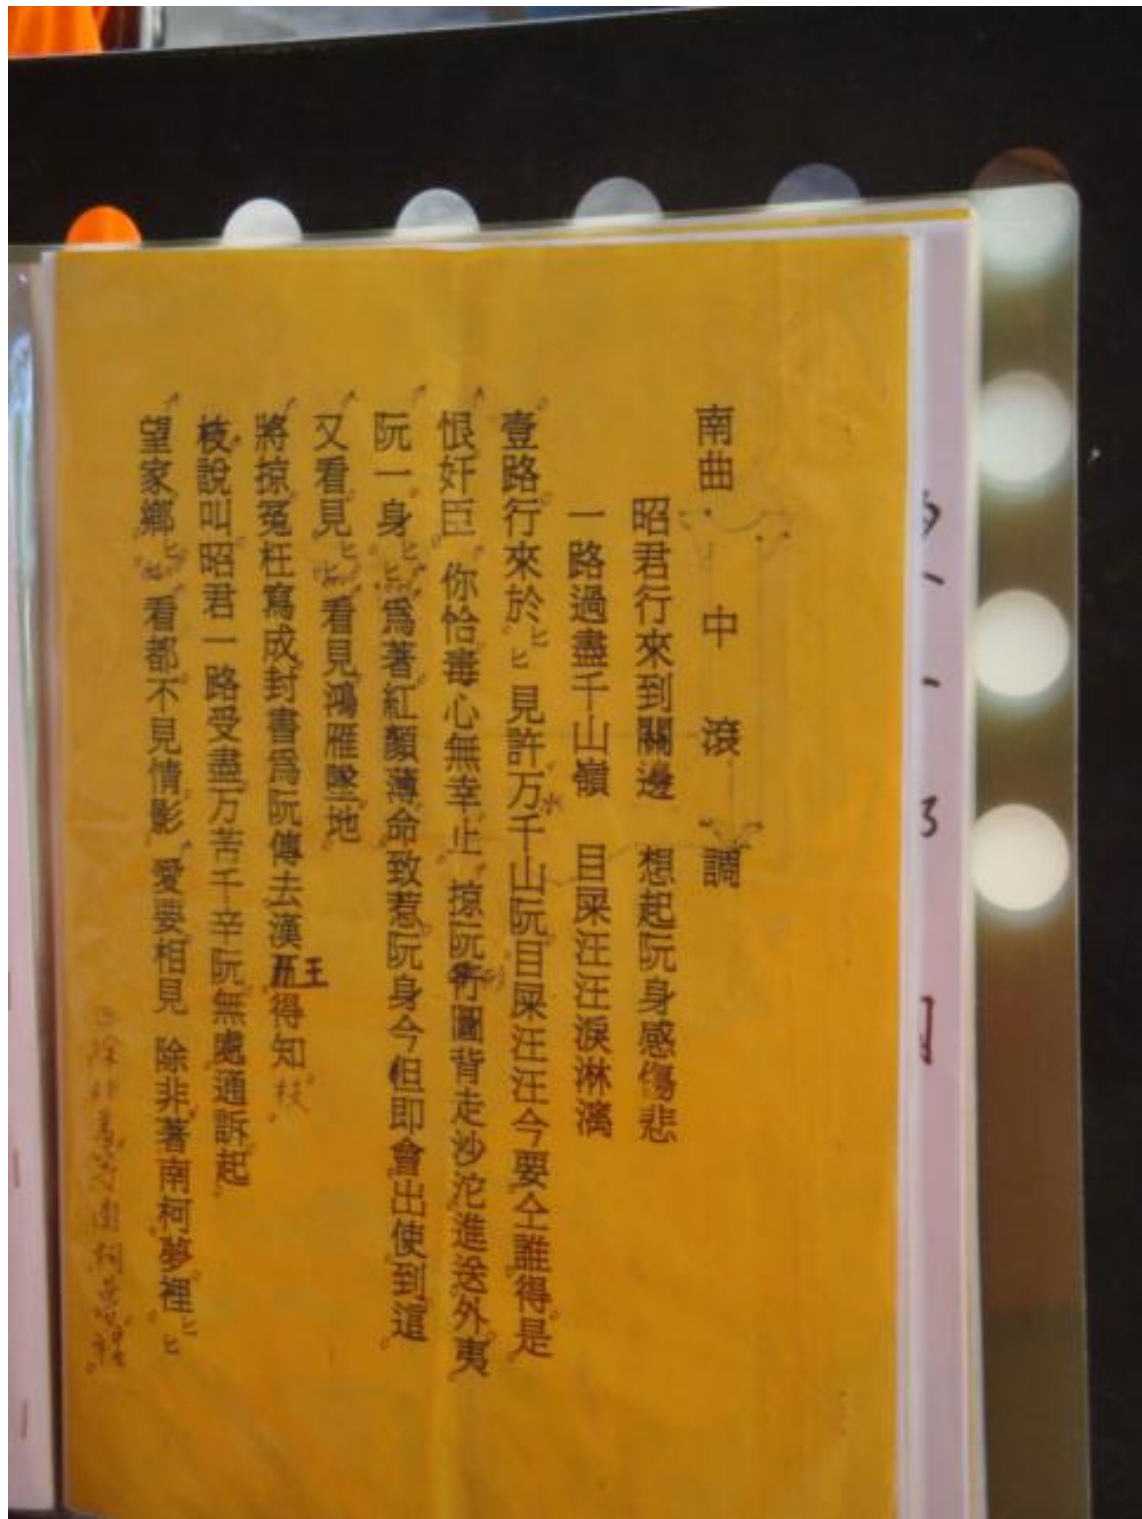 南曲 中滾調
昭君行來到關邊 想起阮身感傷悲
一路過盡千山嶺 目屎汪汪淚淋漓
壹路行來於 見許万千山阮目屎汪汪今要仝誰得是
恨奸臣 你恰毒心無幸止 掠阮 圖背走沙沱進送外夷
阮一身 爲著紅顏薄命致惹阮身今但即會出使到這
又看見 看見鴻雁墜地
將掠冤枉寫成封書爲阮傳去漢王得知 枝
枝說叫昭君一路受盡万苦千辛阮無處通訴起
望家鄉 看都不見情影 愛要相見 除非著南柯夢裡